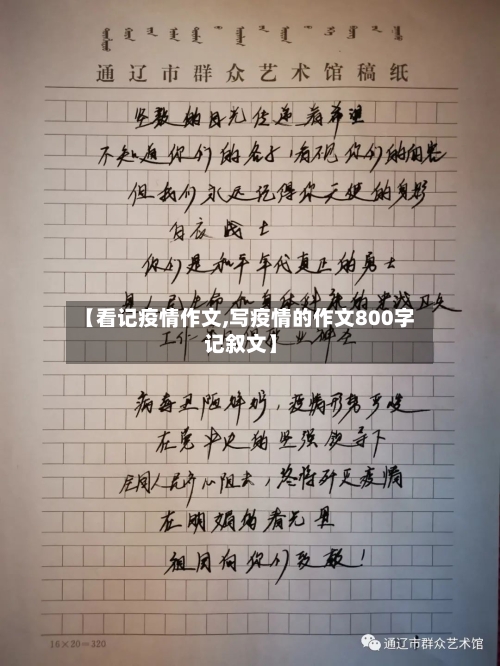 通辽市群众艺术馆稿纸
坚毅的目光传递着希望
不知道你们的名字,看不见你们的面容
但我们永远记得你天使的身影
白衣战士
你们是和平年代真正的勇士
是人民生命和身体健康的忠诚卫兵
【看记疫情作文,写疫情的作文800字
记叙文】
病毒丑陋
在党中央的坚强领导下
全国人民齐心阻击,终将歼灭疫情
在明媚的春光里
祖国向你们致敬!
16×20=320
通辽市群众艺术馆